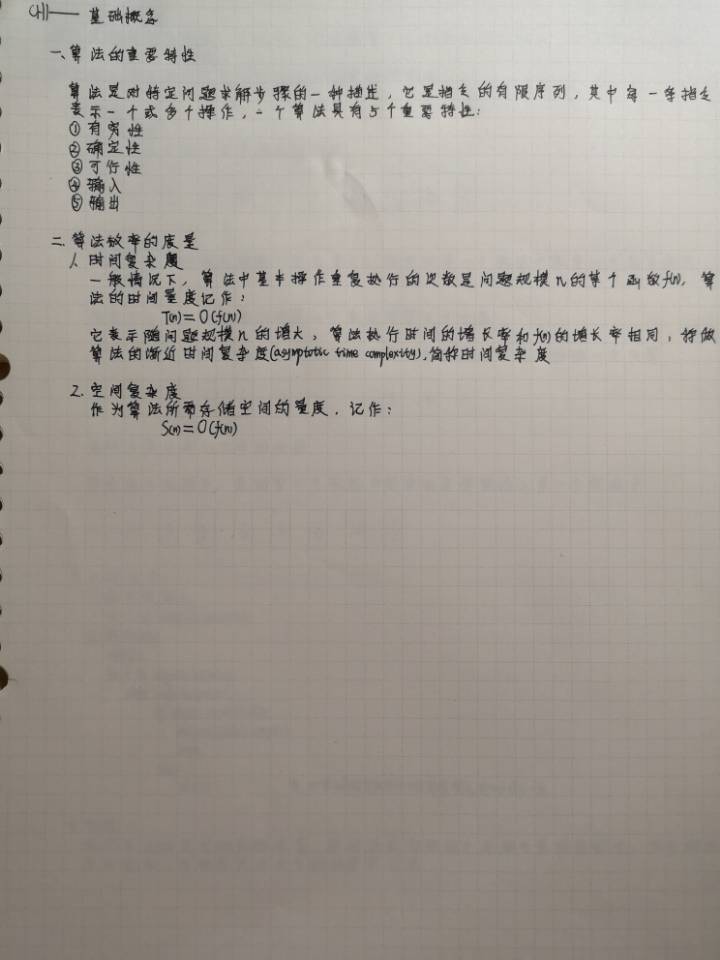 基础概念
一、算法的重要特性
算法是对特定问题求解步骤的一种描述，它是指令的有限序列，其中每一条指令
表示一个或多个操作，一个算法具有5个重要特性：
① 有穷性
② 确定性
③ 可行性
④ 输入
⑤ 输出
二、算法效率的度量
1. 时间复杂度
一般情况下，算法中基本操作重复执行的次数是问题规模n的某个函数f(n)，算
法的时间量度记作：
T(n)=O(f(n))
它表示随问题规模n的增大，算法执行时间的增长率和f(n)的增长率相同，称做
算法的渐近时间复杂度(asymptotic time complexity)，简称时间复杂度
2. 空间复杂度
作为算法所需存储空间的量度，记作：
S(n)=O(f(n))